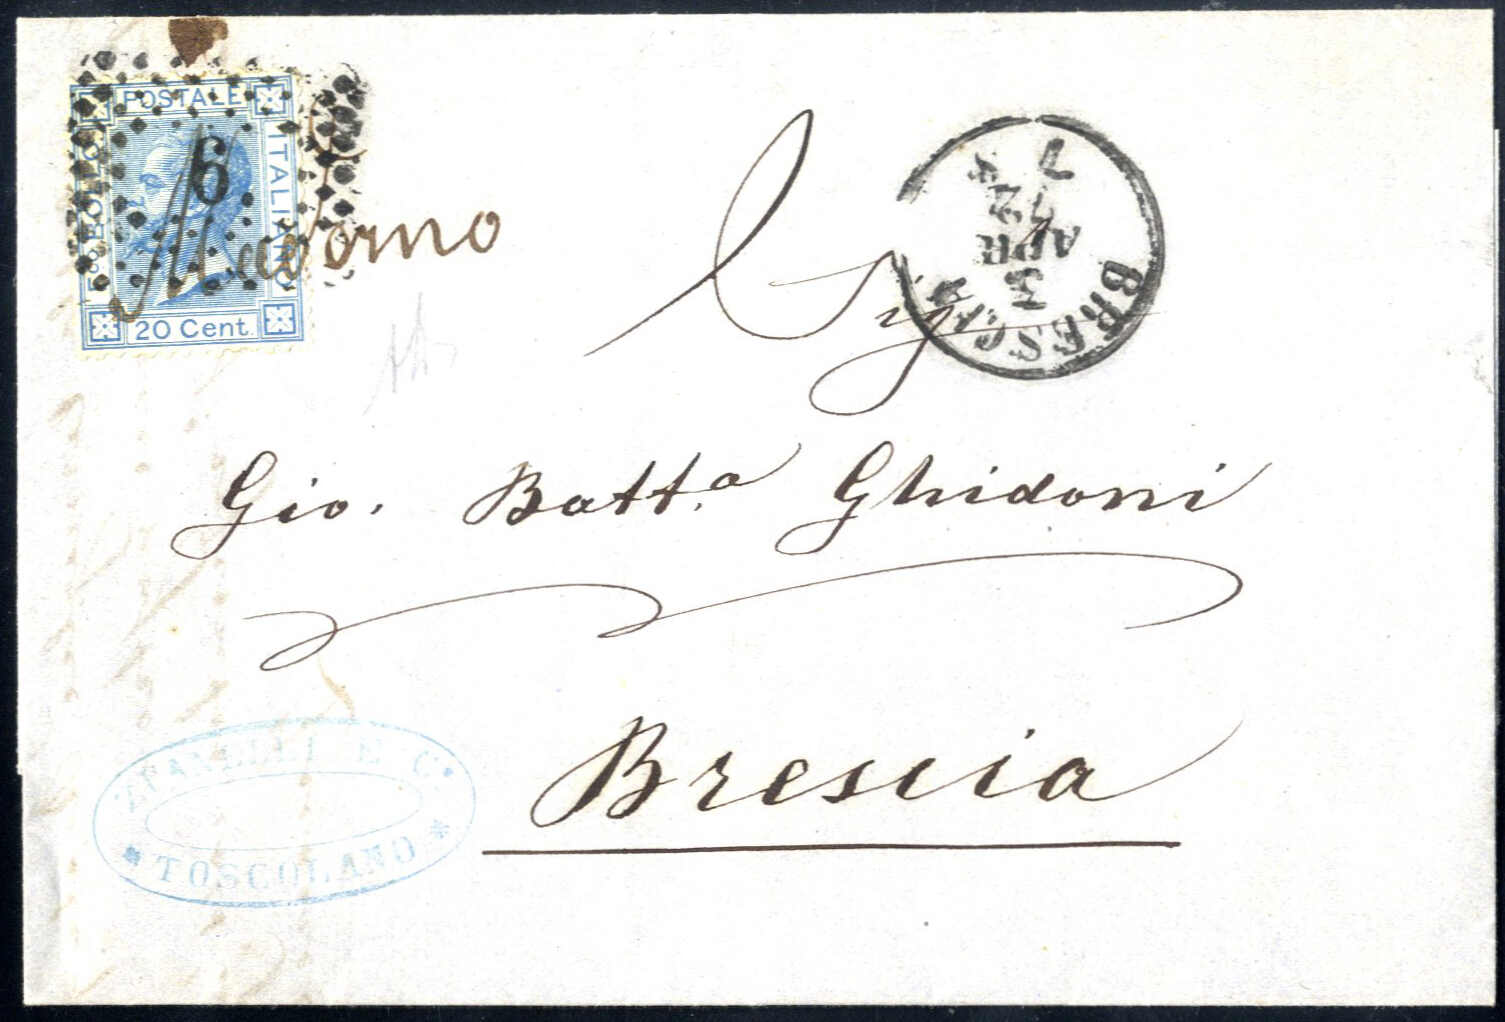 POSTALE
BOLLO
ITALIANO
20 Cent.
6
Maderno
BRESCIA
3
APR
72
7 S
Sig.
Gio. Batt.a Ghidoni
Brescia
E C.
TOSCOLANO